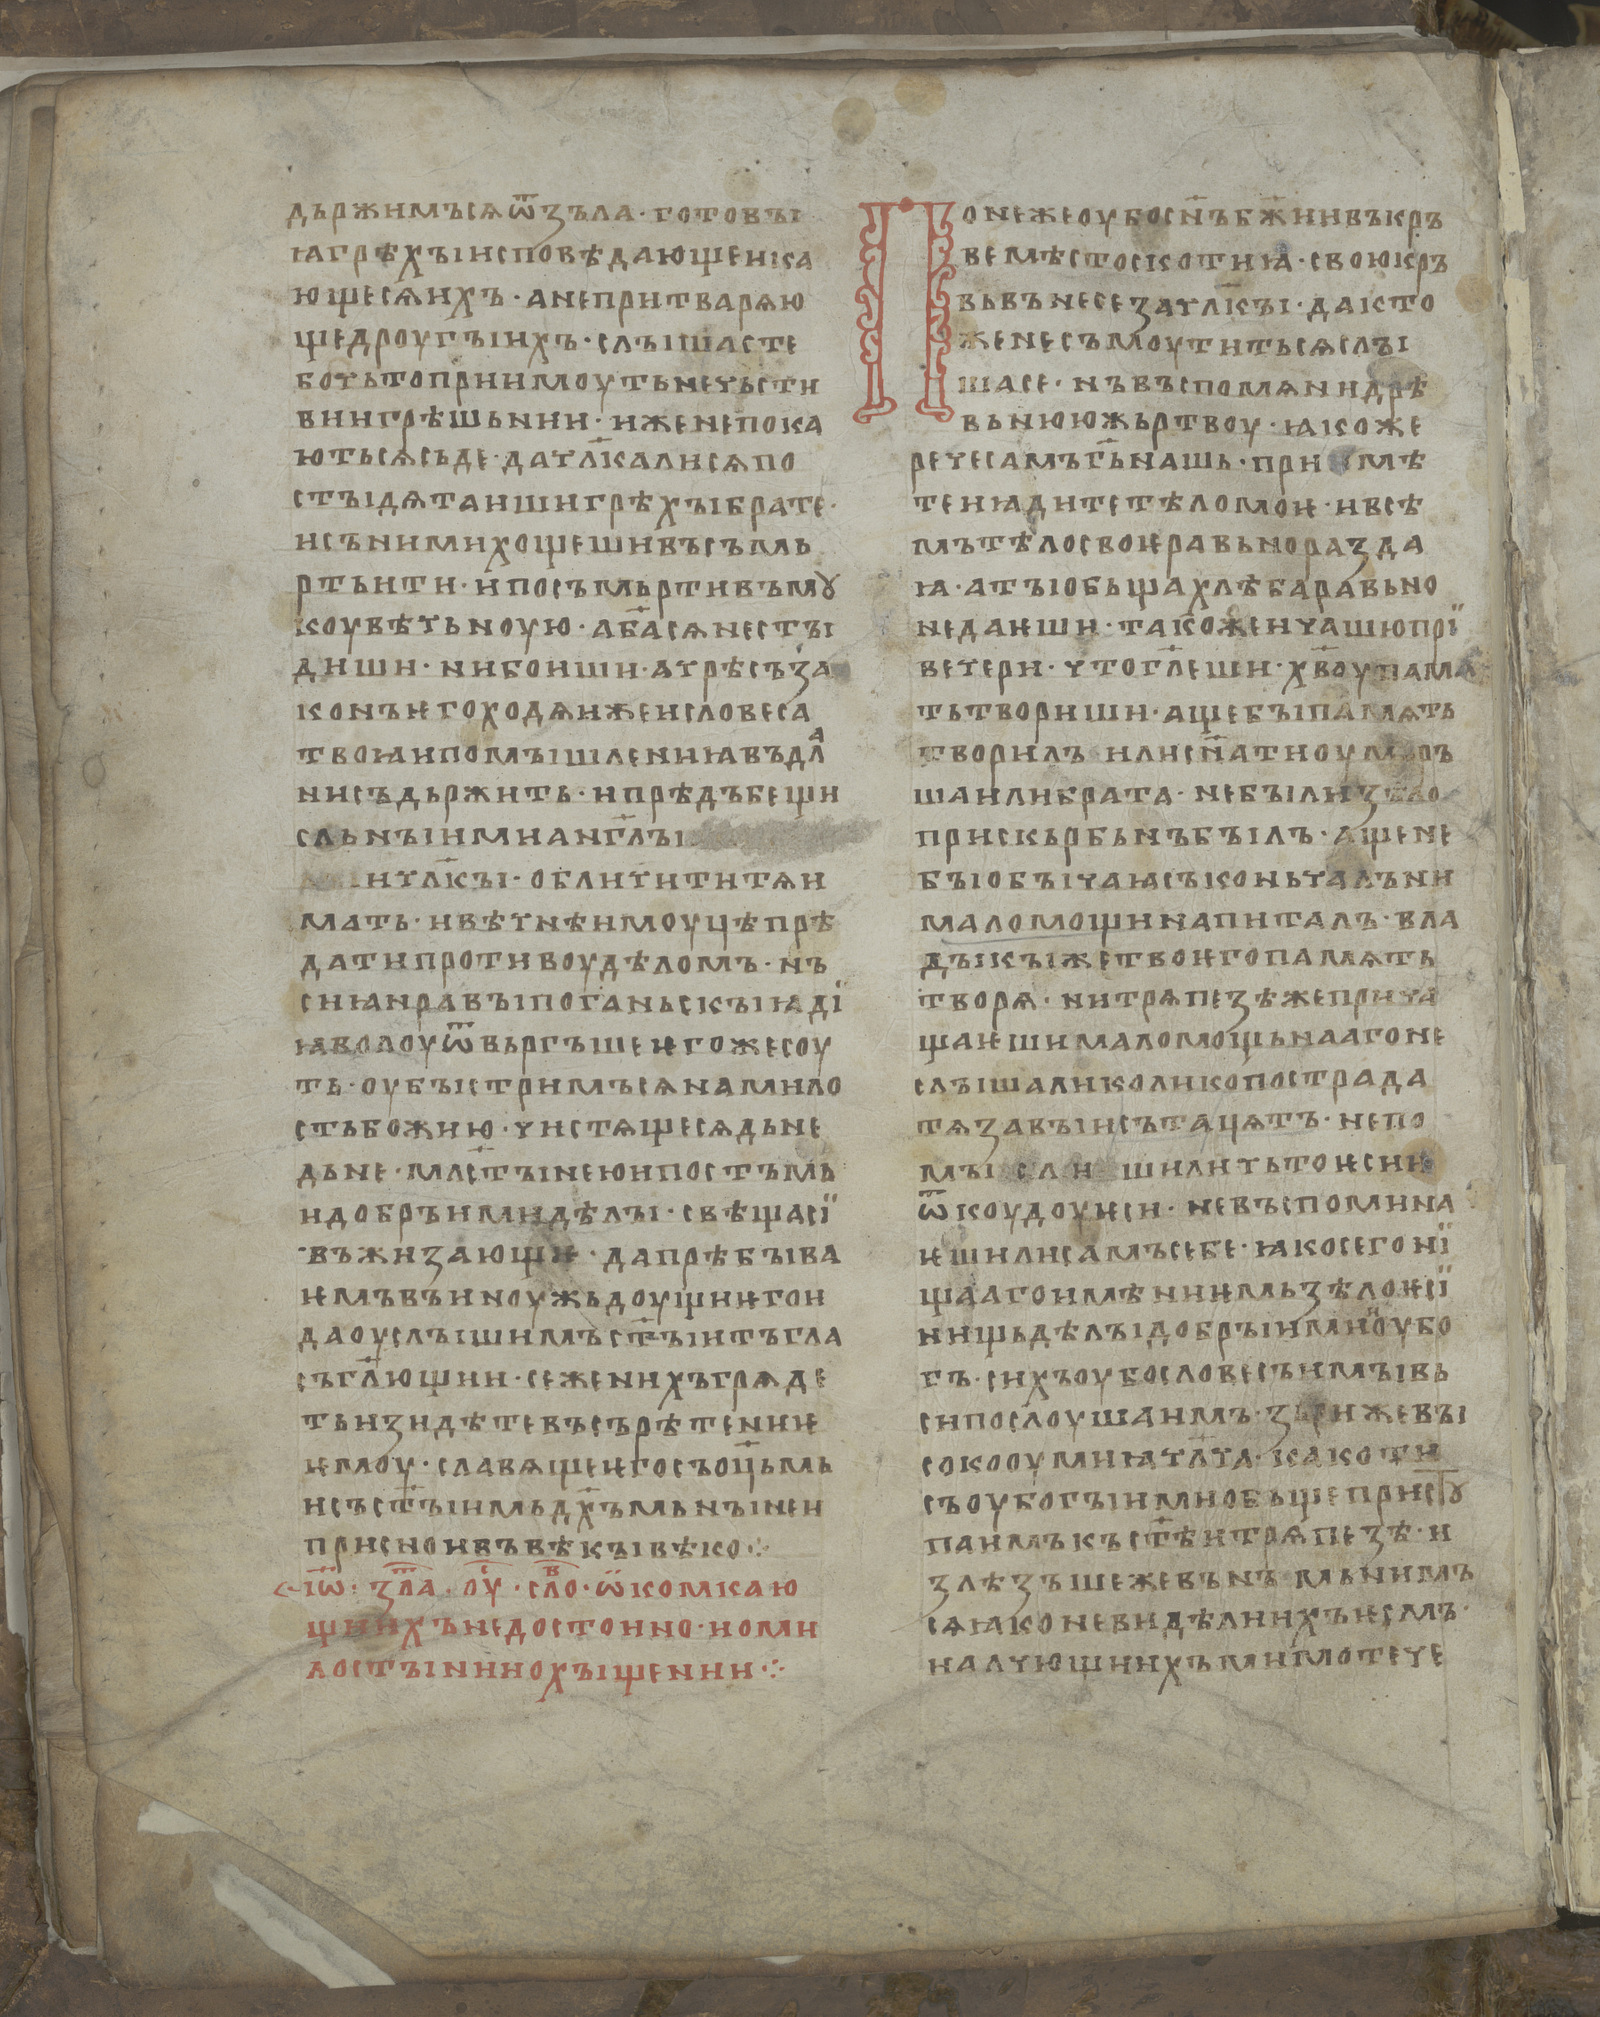 дьржимъсѧѿзъла·готовъı
ꙗгрѣхъıисповѣдающеика
ющесѧихъ·анепритварѧю
щедроугъıихъ·слъıшасте
бочьтоприимоутьнечьсти
виигрѣшьнии·иженепока
ютьсѧсьде·дачл҃калисѧпо
стъıдѧтаишигрѣхъıбрате·
исънимихощешивъсъмь
ртьити·ипосъмьртивъмꙋ
коувѣчьноую·аб҃асѧнестъı
диши·нибоиши·ачрѣсъза
конъѥгоходѧижеисловеса
твоꙗипомъıшлениꙗвъдл҇а
нисъдьржить·ипрѣдъбещи
сльнъıимианг҃лъı
ичл҃къı·обличититѧи
мать·ивѣчнѣимоуцѣпрѣ
датипротивоудѣломъ·нъ
сиꙗнравъıпоганьскъıꙗдї
ꙗволоуѿвьргъшеѥгожесоу
ть·оубъıстримъсѧнамило
стьбожию·чистѧщесѧдьне
дьне·млс҃тъıнеюипостъмь
идобръимидѣлъı·свѣщасї
въжизающе·дапрѣбъıва
ѥмъвъиноужьдоущиѥгои
даоуслъıшимъст҃ъıитъгла
съгл҃ющии·сеженихъгрѧде
тьизидѣтевъсърѣтениѥ
ѥмоу·славѧщеѥгосъоц҃ьмь
исъст҃ъıимьдх҃ъмьнъıнеи
присноивъвѣкъıвѣко·:·
їѡ҃·зла҃·оу҃с·сло҃в·ѡкомкаю
щиихънедостоино·иоми
лостъıниıохъıщении·:·
Понежеоубосн҃ъбж҃иивъкръ
вемѣстоскотиꙗ·своюкръ
вьвънесезачл҃къı·дакто
женесъмоутитьсѧслъı
шасе·нъвъспомѧнидрѣ
вьнююжьртвоу·ꙗкоже
речесамъг҃ьнашь·приимѣ
теиꙗдитетѣломоѥ·ивсѣ
мътѣлосвоѥравьноразда
ꙗ·атъıобьщахлѣбаравьно
недаѥши·такожеичашюпрї
вечери·чтогл҃еши·хв҃оупамѧ
тьтвориши·ащебъıпамѧть
творилъ илисн҃атиоумьръ
шаилибрата·небъılizѣло
прискърбьнъбъıлъ·ащене
бъıобъıчаꙗсъконьчалъни
маломощинапиталъ·вла
дъıкъıжетвоѥгопамѧть
творѧ·нитрѧпезѣжеприча
щаѥшималомощьнаагоне
слъıшаликоликопострада
тѧзавъıисътацѧтъ·непо
мъıслишиличьтоѥсии
ѿкоудоуѥси·невъспомина
ѥшилисамъсебе·ꙗкосегонї
щаагоимѣниимьзѣлоѥсї
нищьдѣлъıдобръıимииоубо
гъ·сихъоубословесъимъıвь
сипослоушаимъ·зьрижевъı
сокооумиꙗчл҃ча·какоти
съоубогъıимиобьщепристꙋ
паимъкъст҃ѣитрѧпезѣ·и
злѣзъшежевънъ мьнимъ
сѧꙗконевидѣлиихъѥсмъ·
налчющиихъмимотече